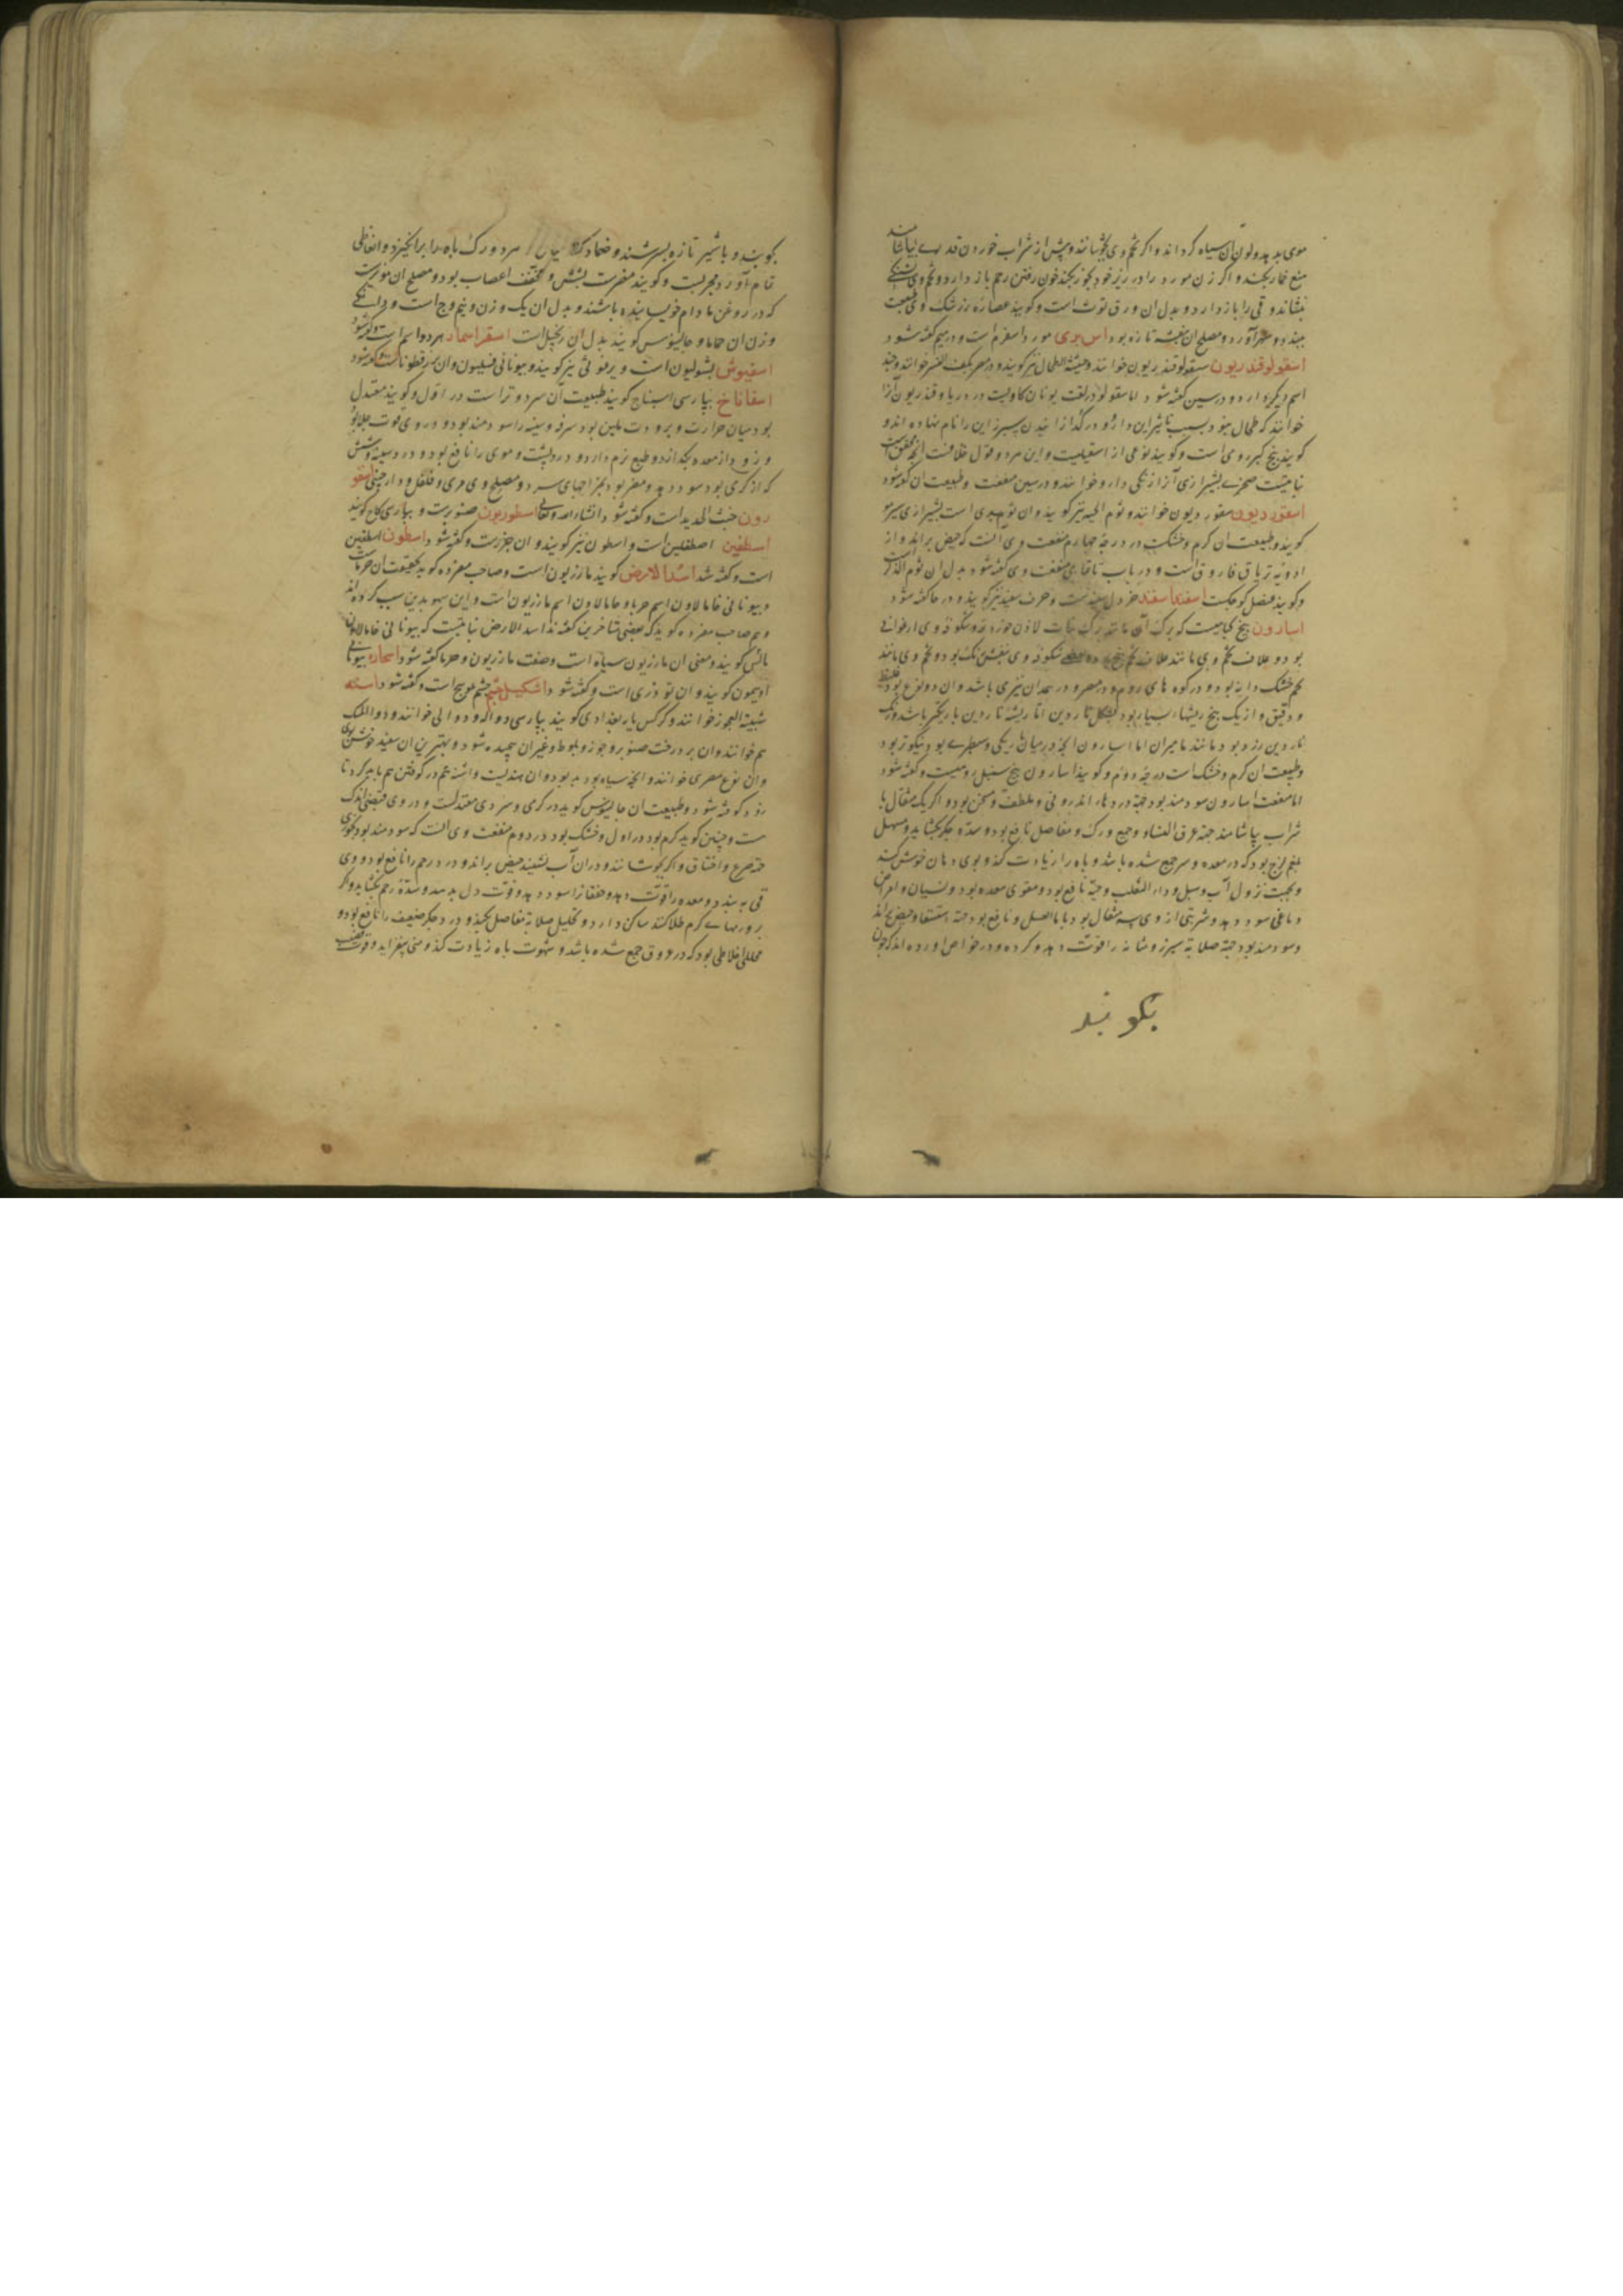 موی بدید ولون آن سیاه کرداند و اکر تخم وی بجوشانند و پیش از شراب خوردن قدری بیاشامند
منع خمار بکند و اکر زن مورد را در زیر خود بخور بکند خون رفتن رحم باز دارد و تخم وی تشنکی
بنشاند و قی را باز دارد و بدل ان ورق توت است و کویند عصاره زرشک وی طبیعت
ببندد و سهر آورد و مصلح ان بنفشه تازه بود اس بری مورد اسفرم است و در میم کفته شود
اسقولوقندریون سقولوقندریون خوانند و حشیشة الطحال نیز کویند و در مصر بکف النسر خوانند و چند
اسم دیکر دارد و در سین کفته شود اما سقولو در لغت یونان کاولیت در دریا و قندریون آنرا
خوانند که طحال ببرد بسبب تاثیر این دارو در کدازانیدن سپرز این را نام نهاده اند و
کویند بیخ کبر رومی است و کویند نوعی از اسقیل است و این هر دو قول خلافست انچه محقق است
نباتیست صخری بشیرازی آنرا زنکی دارو خوانند و در سین منفعت و طبیعت ان کفته شود
اسقوردیون سقوردیون خوانند و ثوم الحیه نیز کویند و ان ثوم بری است بشیرازی سیر مو
کویند و طبیعت ان کرم و خشکست در درجه چهارم منفعت وی آنست که حیض براند و از
ادویه تریاق فاروق است و در باب ثا منفعت وی کفته شود بدل ان ثوم الذکر است
و کویند عنصل کوچکست اسفند اسفند خردل سفید است و حرف سفید نیز کویند و در حا کفته شود
اسارون بیخ کیاهیست که برک آن مانند برک نبات لاذن خورد بود و شکوفه وی ارغوانی
بود و غلاف تخم وی مانند غلاف تخم بنج بود شکوفه وی بنفش رنک بود و تخم وی مانند
تخم خشک دانه بود و در کوه های روم و در مصر و در همدان نیز می باشد و ان دو نوع بود غلیظ
و دقیق و از یک بیخ ریشها بسیار بود بشکل ناردین اما ریشه ناردین باریکتر باشد و رنک
ناردین زرد بود مانند مامیران اما اسارون انچه در میان باریکی و سطبری بود نیکوتر بود
و طبیعت ان کرم و خشک است در درجه دوم و کویند اسارون بیخ سنبل رومیست و کفته شود
اما منفعت اسارون سودمند بود جهة دردهاء اندرونی و ملطف و مسخن بود و اکر یک مثقال با
شراب بیاشامند جهة عرق النساء و وجع ورک و مفاصل نافع بود و سده جکر بکشاید و مسهل
بلغم لزج بود که در معده و سر جمع شده باشد و باه را زیادت کند و بوی دهان خوش کند
و بجهت نزول آب و سبل و داء الثعلب و حیه نافع بود و مقوی معده بود و نسیان و امراض
دماغی سود دهد و شربتی از وی سه مثقال بود با ماء العسل و نافع بود جهة استسقا و حیض براند
و سودمند بود جهة صلابة سپرز و مثانه را قوت دهد و کرده و در خواص اورده اند که چون
بکوبند
بکوبند و با شیر تازه بسرشند و ضماد کنند میان هر دو ورک باه را برانکیزد و انعاظی
تمام آورد مجربست و کویند مضرت بشش و مجفف اعصاب بود و مصلح ان مویزست
که در روغن بادام خویسانیده باشند و بدل ان یک وزن و نیم وج است و دانکی
وزن ان حماما و جالینوس کویند بدل ان زنجبیل است اسقر اسماد هر دو اسم است و کفته شود
اسفیوش بشولیون است و برغوثی نیز کویند و بیونانی فسیلیون و ان بزرقطوناست و کفته شود
اسفاناخ بپارسی اسپناج کویند طبیعت آن سرد و تر است در اول و کویند معتدل
بود میان حرارت و برودت ملین بود سرفه و سینه را سودمند بود و در وی قوت جلا بود
و زود از معده بکذرد و طبع نرم دارد و درد پشت و موی را نافع بود و درد سینه و شش
که از کرمی بود سود دهد و مضر بود بمزاجهای سرد و مصلح وی مری و فلفل و دارچینی اسفو
رون خبث الحدید است و کفته شود انشاء الله تعالی اسطوریون صنوبرست و بپارسی کاج کویند
اسطفین اصطفلین است و اسطون نیز کویند و ان جزرست و کفته شود اسطون اسطفین
است و کفته شد اسد الارض کویند مازریون است و صاحب مفرده کوید بحقیقت ان حرباست
و بیونانی خامالاون اسم حربا و خامالاون اسم مازریون است و این سهو بدین سبب کرده اند
و هم صاحب مفرده کوید که بعضی متاخرین کفته اند اسد الارض نباتیست که بیونانی خامالاون
مالس کویند و معنی ان مازریون سیاه است و صفت مازریون و حربا کفته شود اسحاره بیونانی
اویمون کویند و ان تودری است و کفته شود اشکیل چشم چشم بوبیج است و کفته شود اشنه
شیبة العجوز خوانند و کرکس یا بغدادی کویند بپارسی دواله و دوالی خوانند و دواالمسک
هم خوانند و ان بر درخت صنوبر و جوز و بلوط و غیران پیچیده شود و بهترین ان سفید خوشبوی
و ان نوع مصری خوانند و انچه سیاه بود بد بود و ان هندیست و اشنه هم در کوفتن هم باید کرد تا
زود کوفته شود و طبیعت ان جالینوس کوید در کرمی و سردی معتدلست و در وی قبضی اندک
ست و چنین کوید کرم بود در اول و خشک بود در دوم منفعت وی آنست که سودمند بود بخوری
جهة صرع و اختناق و اکر بجوشانند و دران آب بنشینند حیض براند و درد رحم را نافع بود و وی
قی ببندد و معده را قوت دهد و خفقانرا سود دهد و قوت دل بدهد و سده رحم بکشاید و اکر
بر ورمهاء کرم طلا کنند ساکن دارد و تحلیل صلابة مفاصل بکند و درد جکر ضعیف را نافع بود و
محلل اخلاطی بود که در عروق جمع شده باشد و شهوت باه زیادت کند و منی بیفزاید و قوت قضیب